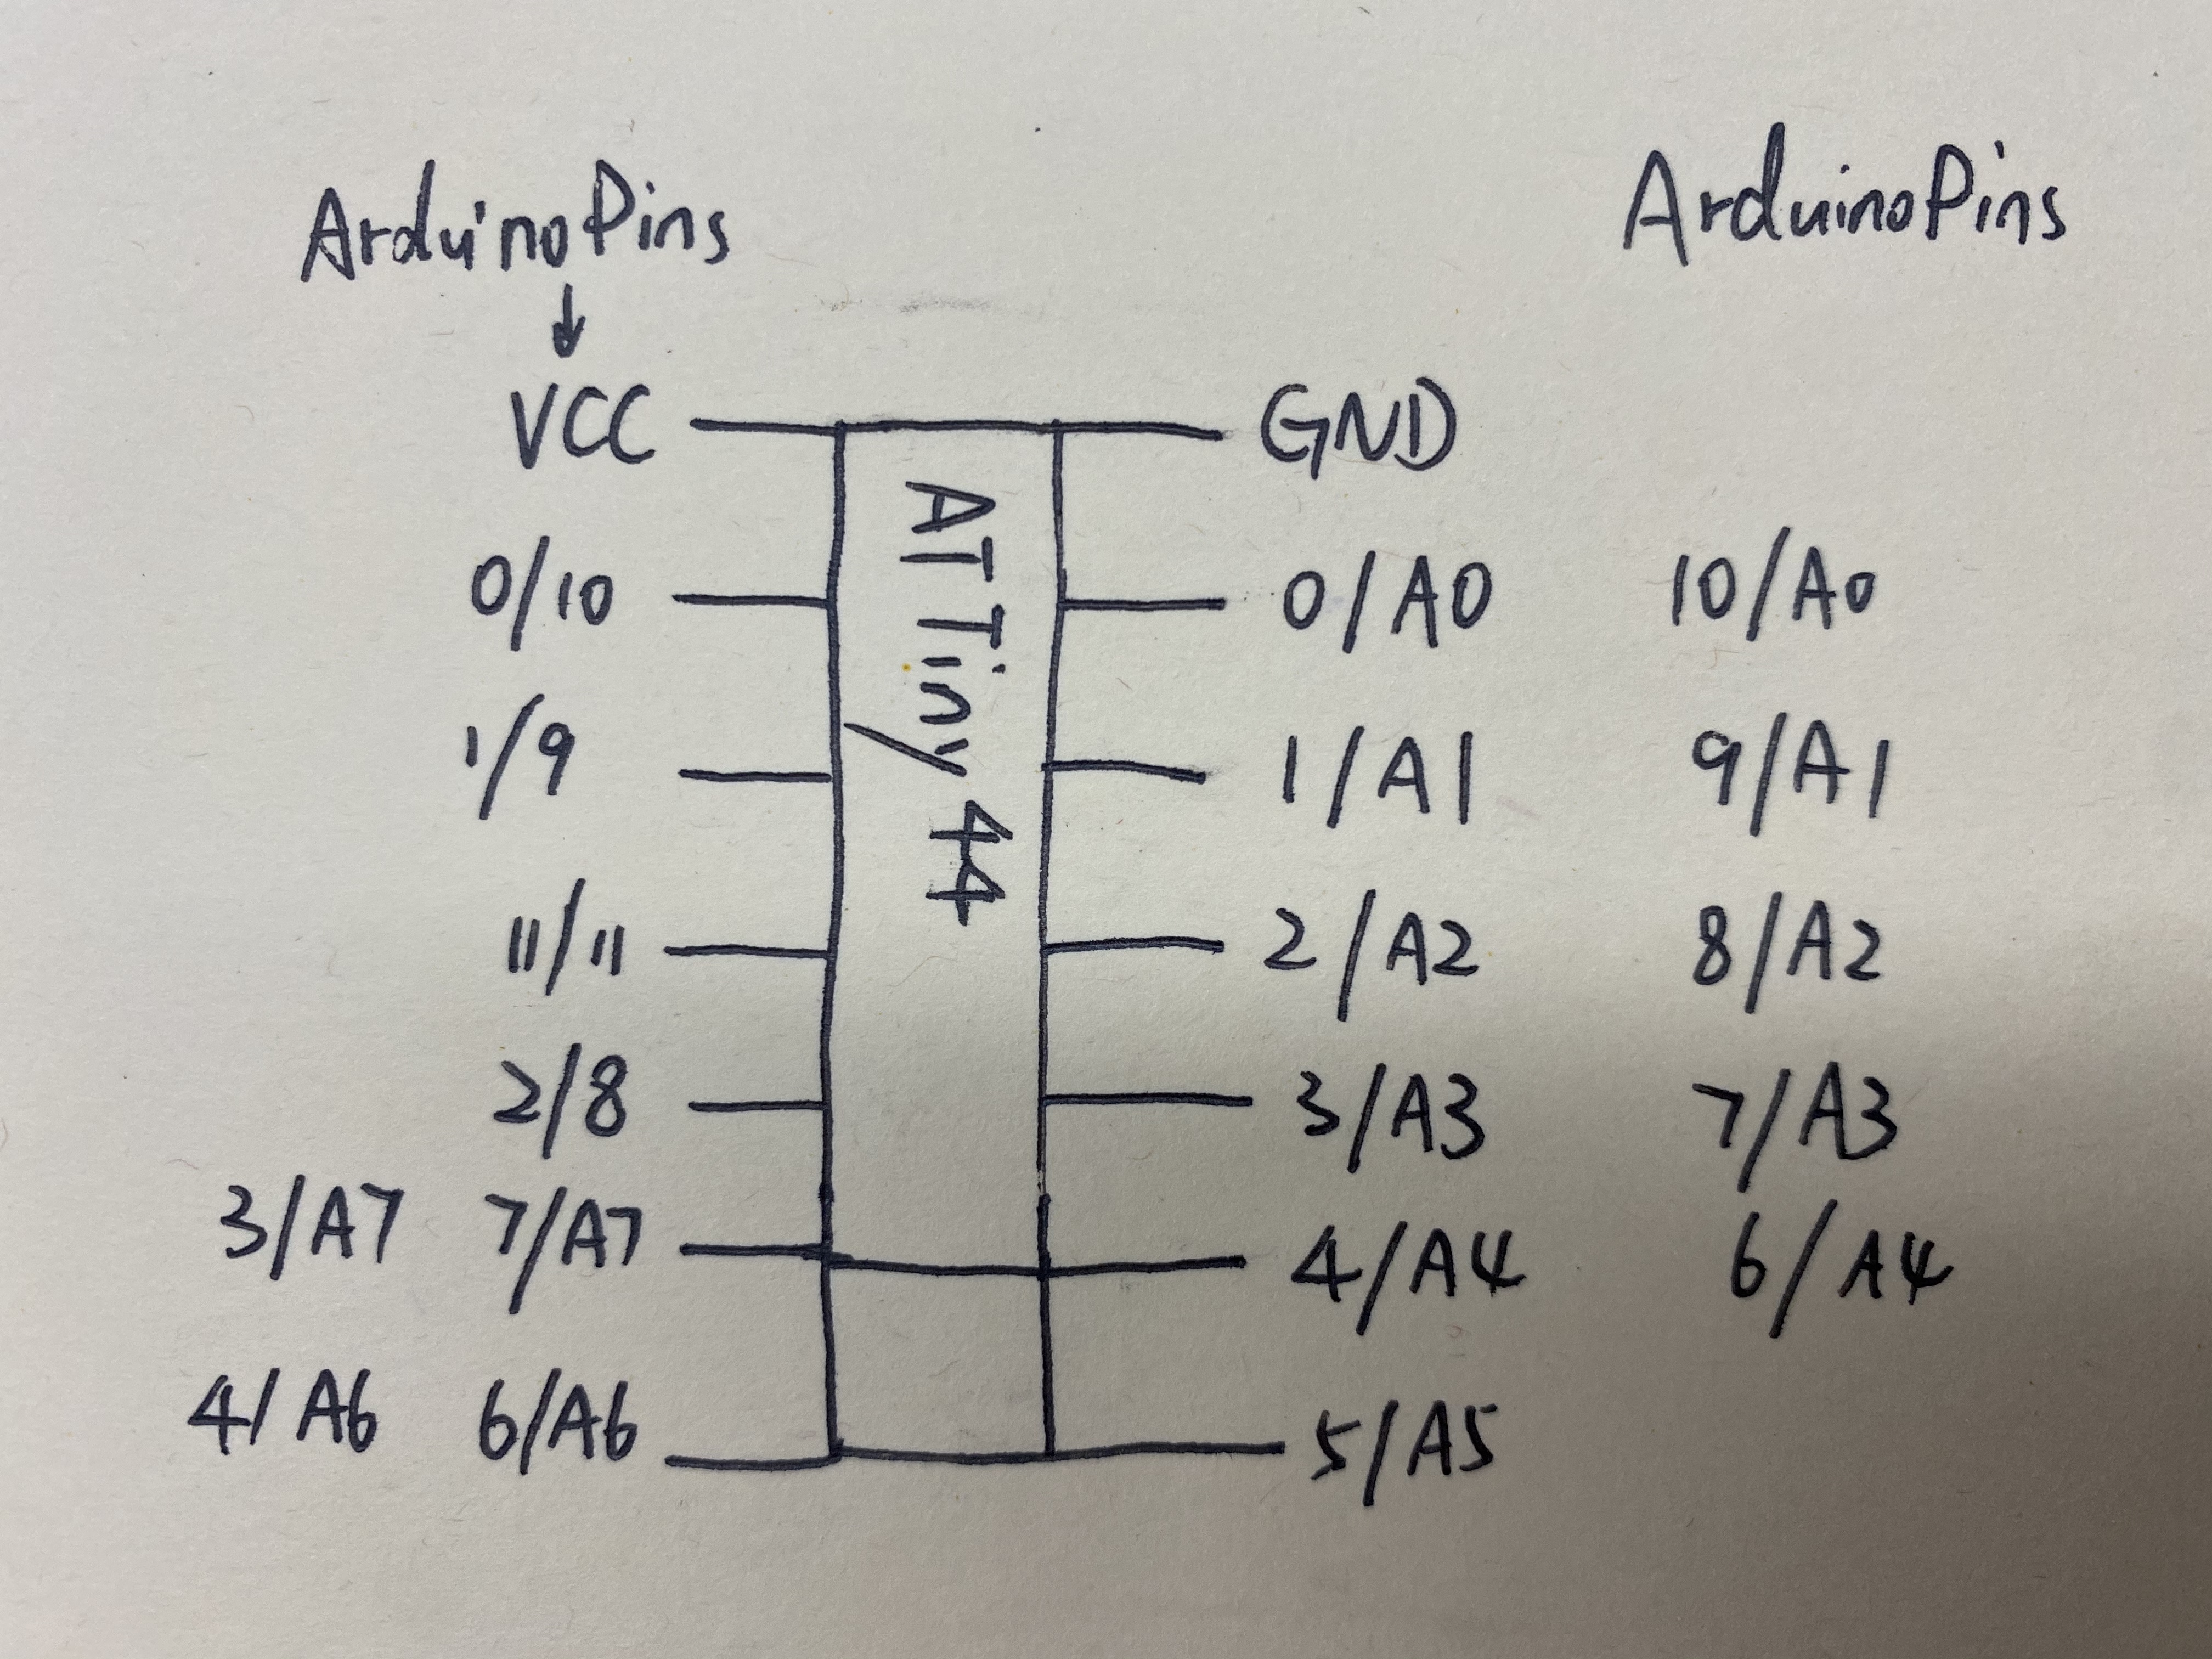 ArduinoPins ArduinoPins
VCC GND
ATTiny44
0/10 0/A0 10/A0
1/9 1/A1 9/A1
11/11 2/A2 8/A2
2/8 3/A3 7/A3
3/A7 7/A7 4/A4 6/A4
4/A6 6/A6 5/A5